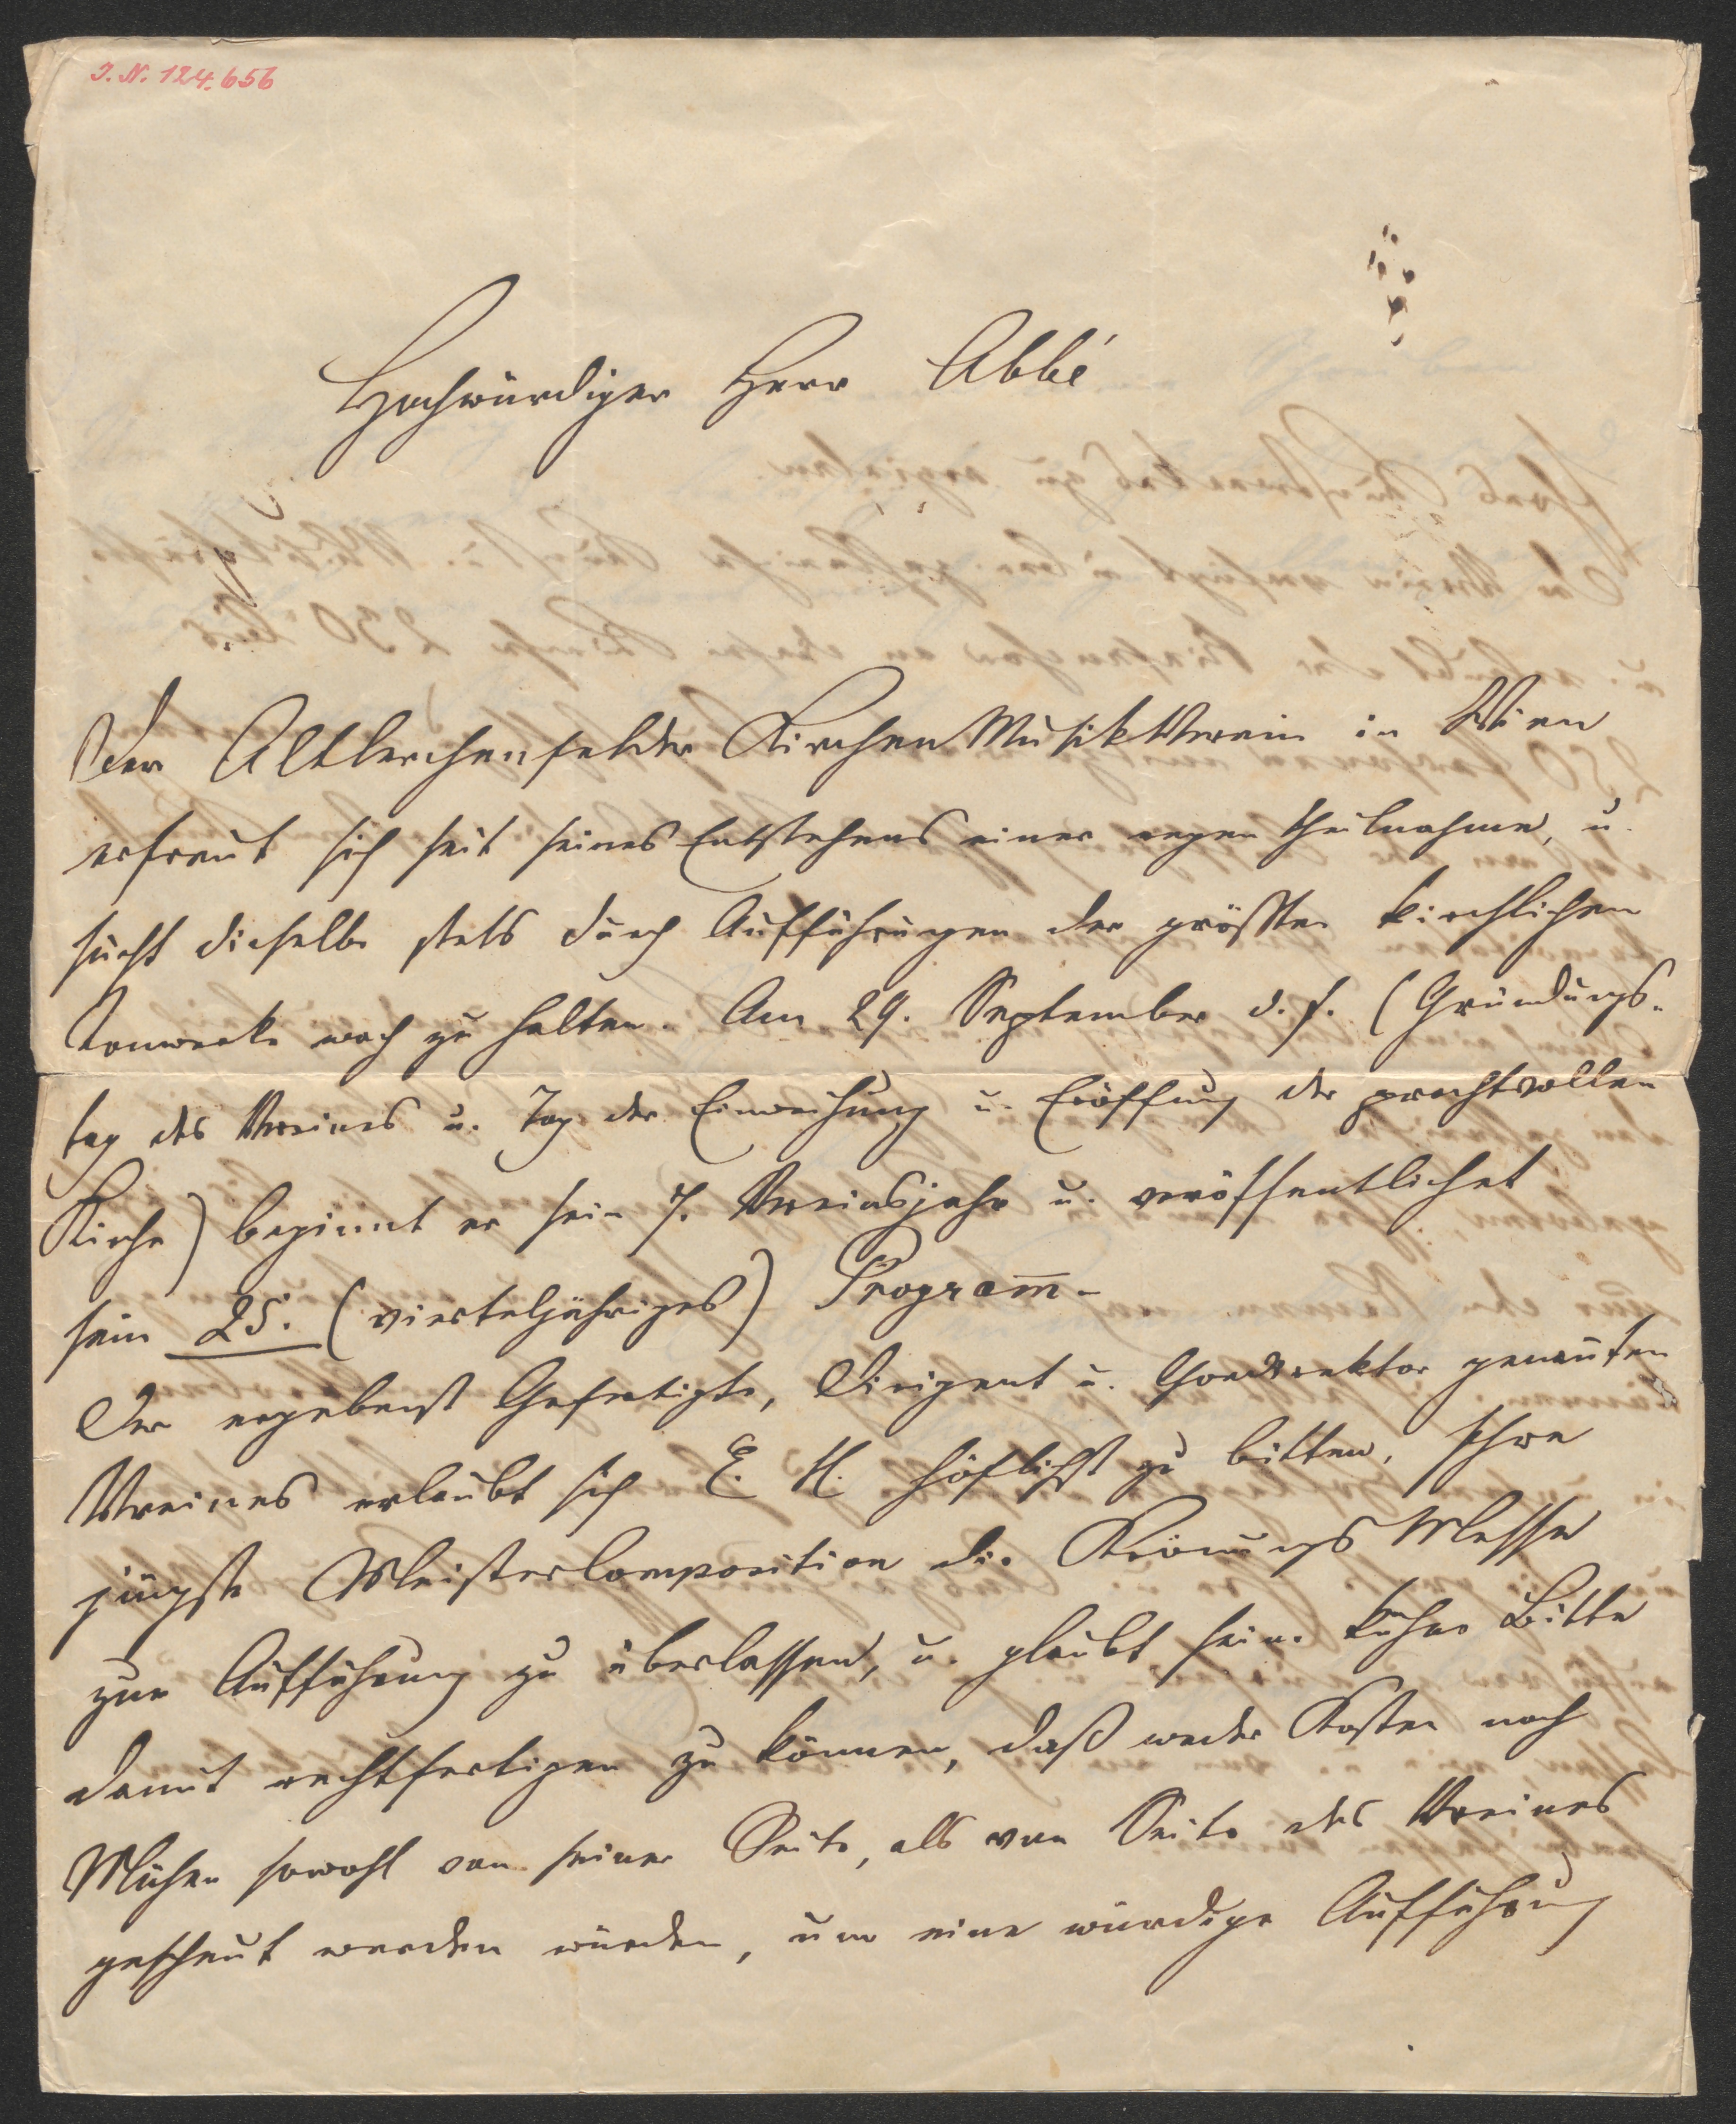 I. N. 124.656
Hochwürdiger Herr Abbé
Der Altlerchenfelder KirchenMusikVerein in Wien
erfreut sich seit seines Entstehens einer regen Theilnahme, u.
sucht dieselbe stets durch Aufführungen der größten kirchlichen
Tonwerke wach zu halten. Am 29. September d. J. (Gründungs-
tag des Vereines u. Tag der Einweihung u. Eröffung der prachtvollen
Kirche) beginnt er sein 7. Vereinsjahr u. veröffentlichet
sein 25. (vierteljähriges) Program̅-
Der ergebenst Gefertigte, Dirigent u. Chordirektor genannten
Vereines erlaubt sich E. H. höflichst zu bitten, Ihre
jüngste Meistercomposition die Krönungs Messe
zur Aufführung zu überlassen, u. glaubt seine kühne Bitte
damit rechtfertigen zu können, daß weder Kosten noch
Mühen sowohl von seiner Seite, als von Seite des Vereines
gescheut werden würden, um eine würdige Aufführung